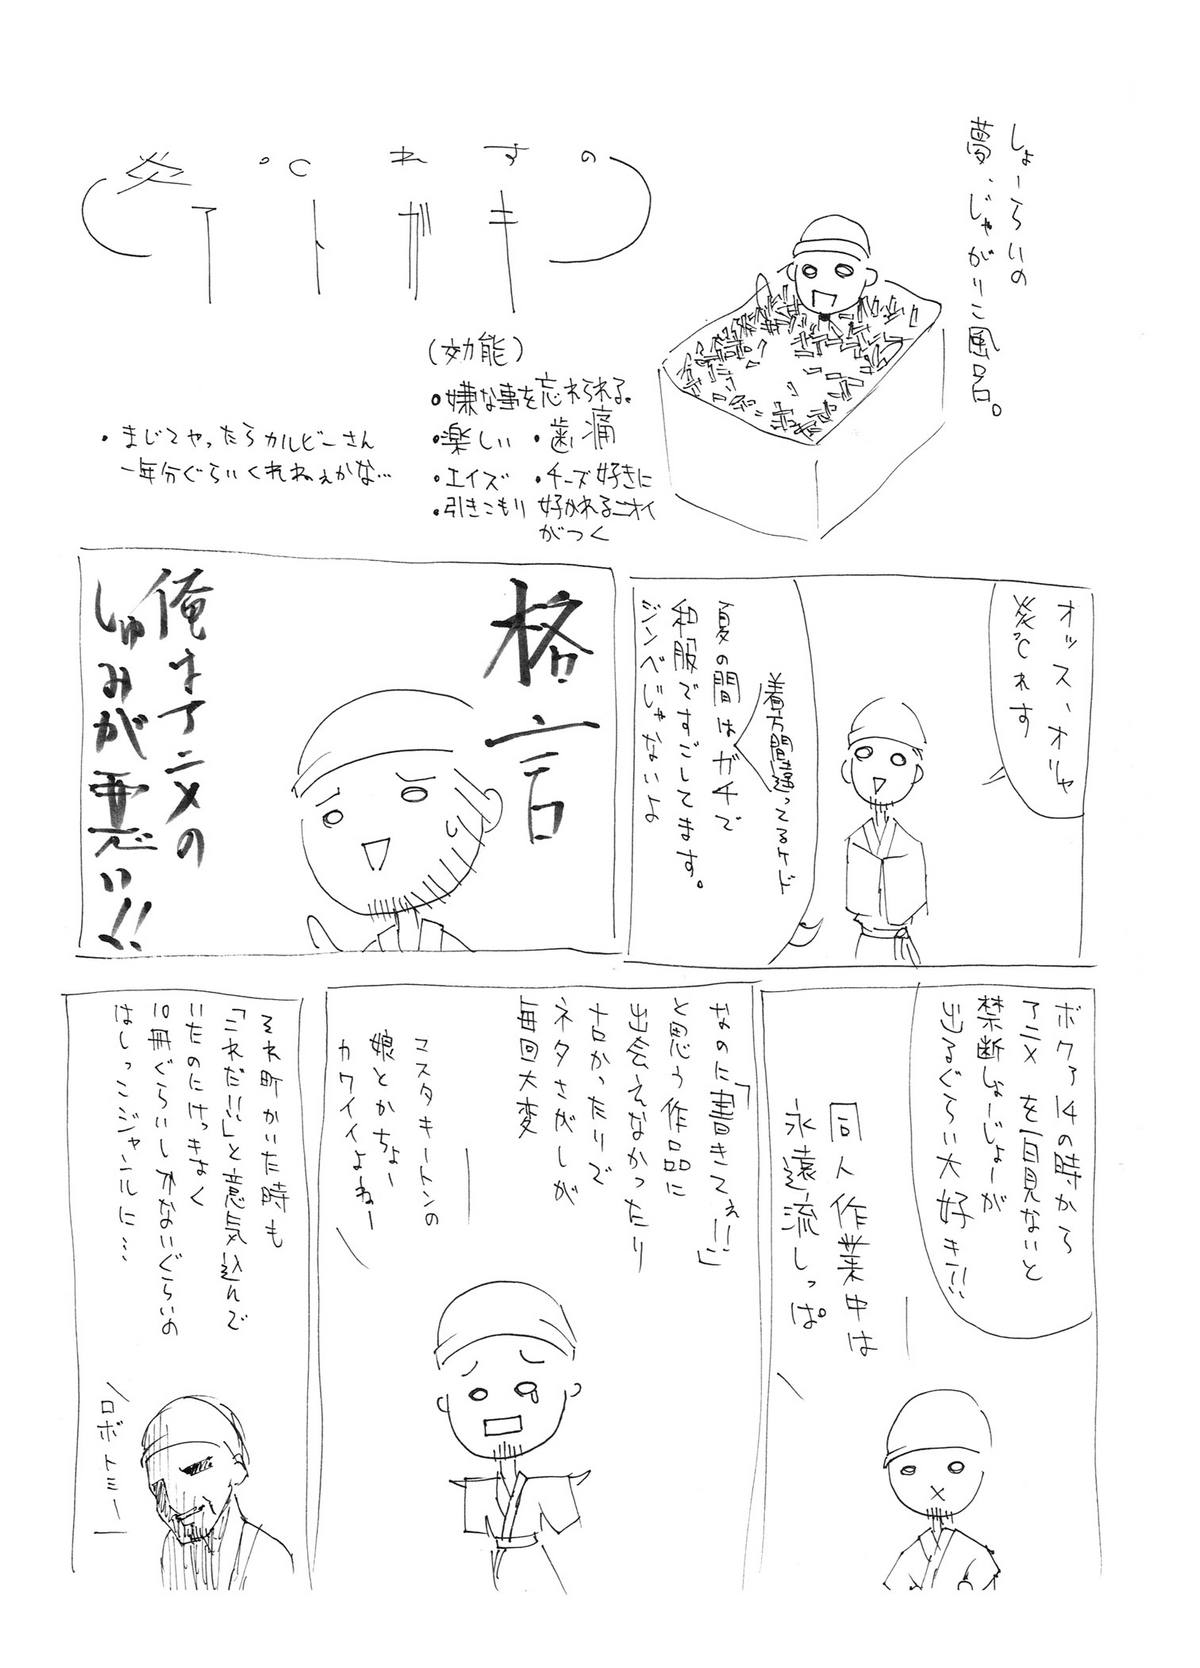 炎℃れすの
アトガキ
しょーらいの
夢、じゃがりこ風呂。
(効能)
・嫌な事を忘れられる。
・楽しい ・歯痛
・エイズ ・チーズ好きに
・引きこもり 好かれるニオイ
がつく
・まじでやったらカルビーさん
一年分ぐらいくれねぇかな…
オッス、オリャ
炎℃れす
着方間違ってるケド
夏の間はガチで
和服ですごしてます。
ジンベじゃないよ
格言
俺はアニメの
しゅみが悪い!!
ボクァ14の時から
アニメを一日見ないと
禁断しょーじょーが
出るぐらい大好き!!
同人作業中は
永遠流しっぱ
なのに「書きてぇ!!」
と思う作品に
出会えなかったり
ナカかったりで
ネタさがしが
毎回大変
マスタキートンの
娘とかちょー
カワイイよねー
それ町かいた時も
「これだ!!」と意気込んで
いたのにけっきょく
10冊ぐらいしかないぐらいの
はしっこジャンルに…
ロボトミー